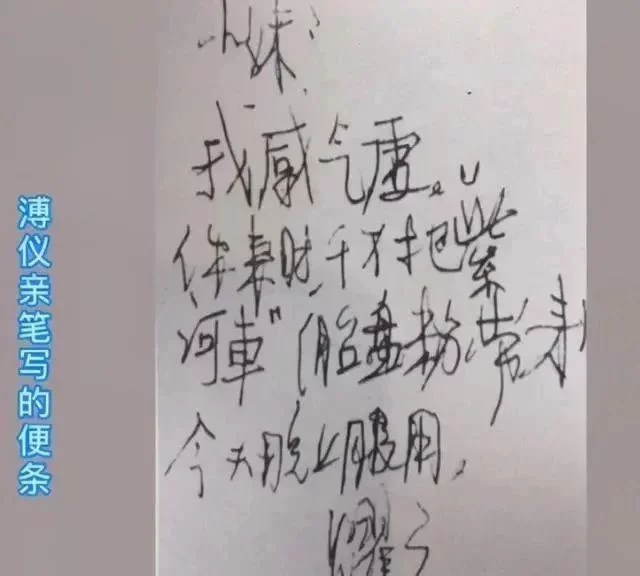 溥仪亲笔写的便条
小妹：
我感气虚。
你来时，千万把“紫
河車”（胎盘粉）带来，
今天晚上服用。
耀之